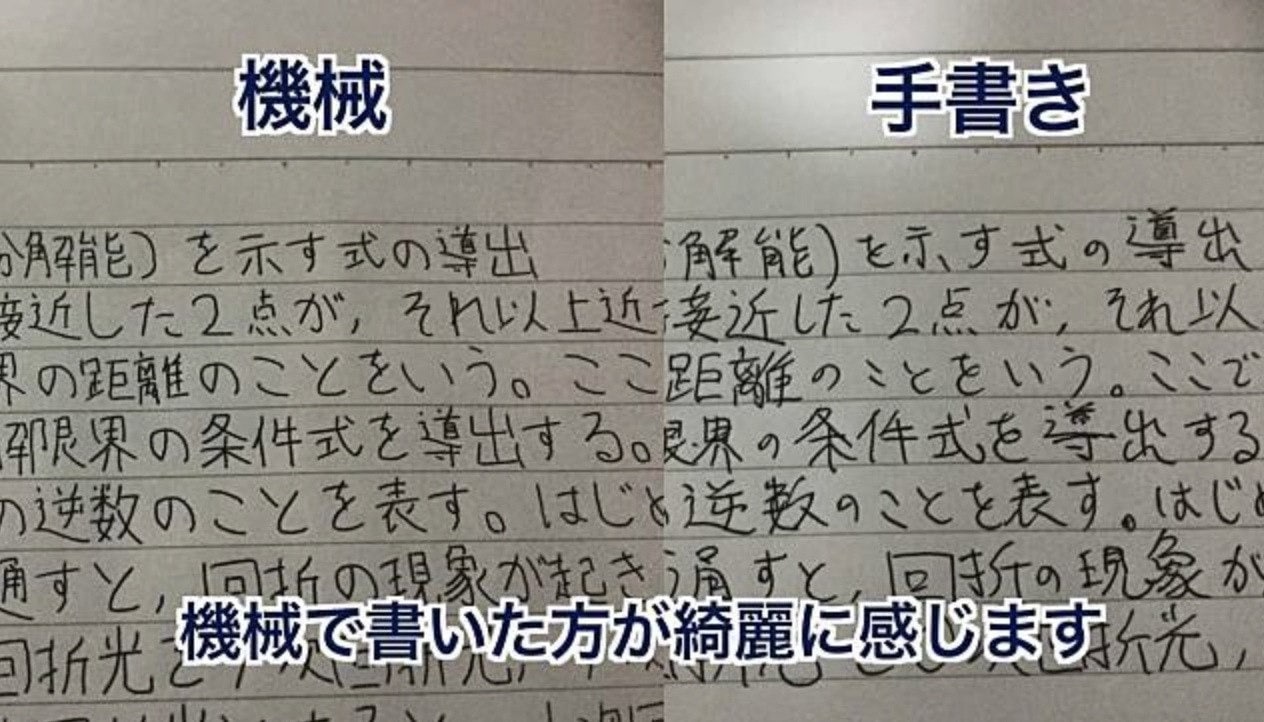 機械
解能）を示す式の導出
接近した2点が，それ以上近
界の距離のことをいう。ここ
限界の条件式を導出する。
の逆数のことを表す。はじめ
通すと，回折の現象が起き
回折光を
手書き
解能）を示す式の導出
接近した2点が，それ以
距離のことをいう。ここで
限界の条件式を導出する
逆数のことを表す。はじめ
通すと，回折の現象が
折光，
機械で書いた方が綺麗に感じます